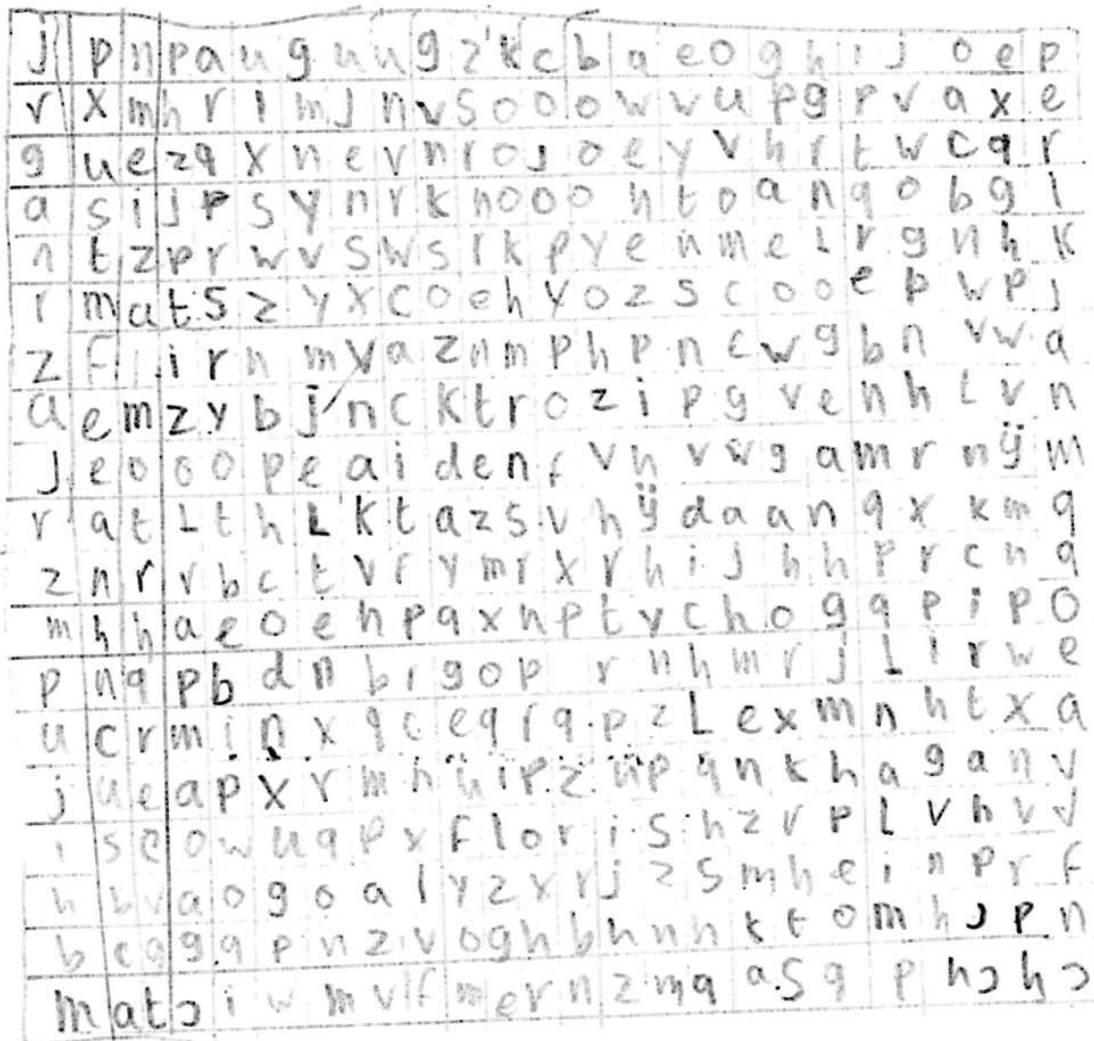 j p n p a u g u u g z k c b a e o g h i j o e p
r x m h r i m j n v s o o o w v u p g r v a x e
g u e z q x n e v n r o j o e y v h r t w c q r
a s i j p s y n r k n o o o n t o a n q o b g l
n t z p r w v s w s r k p y e n m e l r g n h k
r m a t s z y x c o e h y o z s c o o e p w p j
z f i i r n m y a z n m p h p n c w g b n v w a
a e m z y b j n c k t r o z i p g v e n h t v n
j e o o o p e a i d e n f v h v w g a m r n ÿ m
r a t l t h l k t a z s v h ÿ d a a n q x k m q
z n r v b c t v r y m r x r h i j h h p r c n q
m h h a e o e h p q x n p t v c h o g q p i p o
p n q p b d n b r g o p r n h m r j l i r w e
u c r m i n x q c e q r q p z l e x m n h t x a
j u e a p x r m h ü i p z ü p q n k h a g a n v
i s e o w u q p x f l o r i s h z r p l v h v v
h b v a o g o a l y z x r j z s m h e i n p r f
b e g g q p n z v o g h b h n h k t o m h j p n
m a t j i w m v l f m e r n z m q a s q p h j h j